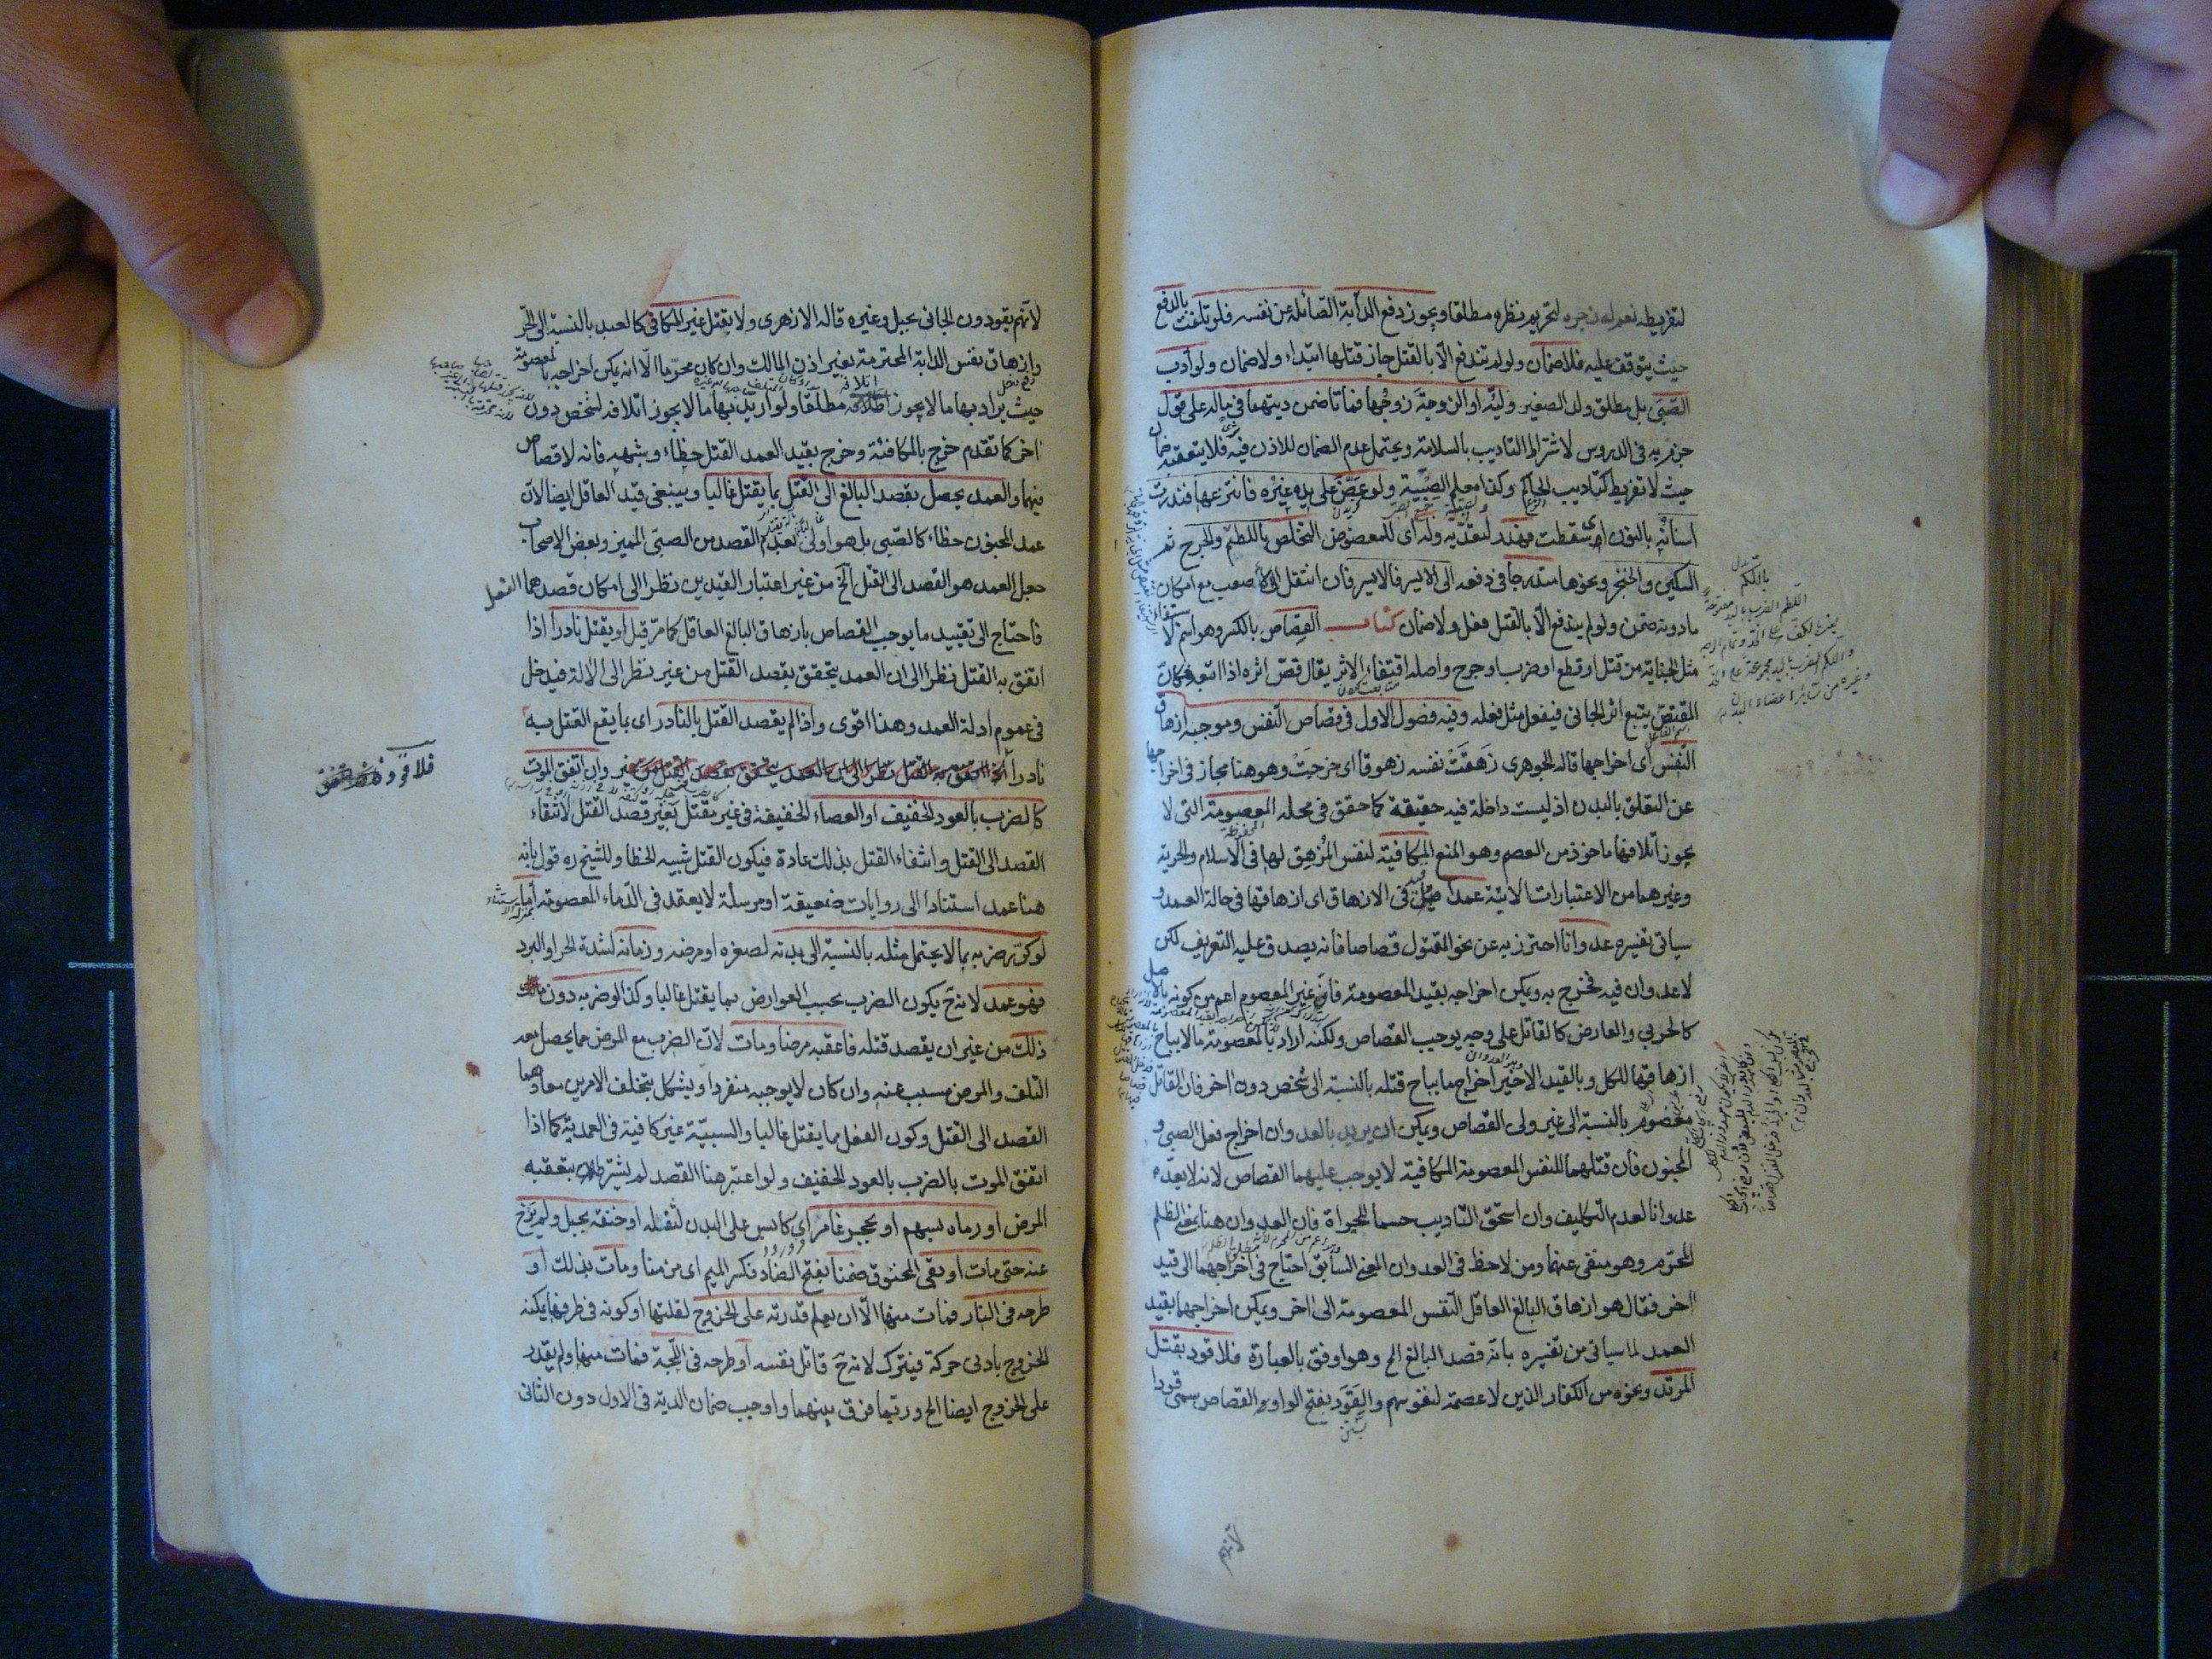 لتفريطه نعم له زجره لتحريم نظره مطلقا ويجوز دفع الدابة الصائلة عن نفسه فلو تلفت بالدفع
حيث يتوقف عليه فلا ضمان ولو لم تندفع الا بالقتل جاز قتلها ابتداء ولا ضمان ولو ادب
الصبى بل مطلق ولد الصغير وليه او الزوجة زوجها فماتا ضمن ديتهما في ماله على قول
جزم به فى الدروس لاشتراط التاديب بالسلامة ويحتمل عدم الضمان للاذن فيه فلا يتعقبه ضمان
حيث لا تفريط كتاديب الحاكم وكذا معلم الصبية ولو عض على يد غيره فانتزعها فندرت
اسنانه بالنون اى سقطت فهدر لتعديه وله اى للمعضوض التخلص باللطم والجرح ثم
السكين والخنجر ونحوها متدرجا فى دفعه الى الايسر فالايسر فان انتقل الى الاصعب مع امكان
مادونه ضمن ولو لم يندفع الا بالقتل فعل ولا ضمان كتاب القصاص بالكسر وهو اسم لاستيفاء
مثل الجناية من قتل او قطع او ضرب او جرح واصله اقتفاء الاثر يقال قص اثره اذا اتبعه فكان
المقتص يتبع اثر الجانى فيفعل مثل فعله وفيه فصول الاول فى قصاص النفس وموجبه ازهاق
النفس اى اخراجها قال الجوهرى زهقت نفسه زهوقا اى خرجت وهو هنا مجاز فى اخراجها
عن التعلق بالبدن اذ ليست داخلة فيه حقيقة كما حقق فى محله المعصومة التى لا
يجوز اتلافها ماخوذ من العصم وهو المنع المكافية لنفس المزهق لها فى الاسلام والحرية
وغيرهما من الاعتبارات الاتية عمدا قيد فى الازهاق اى ازهاقها فى حالة العمد و
سياتى تفسيره عدوانا احترز به عن نحو المقتول قصاصا فانه يصدق عليه التعريف لكن
لا عدوان فيه فخرج به ويمكن اخراجه بقيد المعصومة فان غير المعصوم اعم من كونه بالاصل
كالحربي والعارض كالقاتل على وجه يوجب القصاص ولكنه اراد بالمعصومة ما لا يباح
ازهاقها للكل وبالقيد الاخير اخراج ما يباح قتله بالنسبة الى شخص دون اخر فان القاتل
معصوم بالنسبة الى غير ولى القصاص ويمكن ان يريد بالعدوان اخراج فعل الصبى و
المجنون فان قتلهما للنفس المعصومة المكافية لا يوجب عليهما القصاص لانه لا يعد
عدوانا لعدم التكليف وان استحق التاديب حسما للجراة فان العدوان هنا بمعنى الظلم
المحرم وهو منفى عنهما ومن لاحظ فى العدوان المعنى السابق احتاج فى اخراجهما الى قيد
اخر فقال هو ازهاق البالغ العاقل النفس المعصومة الى اخر ويمكن اخراجهما بقيد
العمد لما سياتى من تفسيره بانه قصد البالغ الخ وهو اوفق بالعبارة فلا قود بقتل
المرتد ونحوه من الكفار الذين لا عصمة لنفوسهم والقود بفتح الواو القصاص سمى قودا
لانهم
لانهم يقودون الجانى بحبل وغيره قاله الازهرى ولا يقتل غير المكافى كالعبد بالنسبة الى الحر
وازهاق نفس الدابة المحترمة بغير اذن المالك وان كان محرما الا انه يمكن اخراجه بالمعصومة
حيث يراد بها ما لا يجوز اتلافه مطلقا ولو اريد بها ما لا يجوز اتلافه لشخص دون
اخر كما تقدم خرج بالمكافئة وخرج بقيد العمد القتل خطاء وشبهه فانه لا قصاص
فيهما والعمد يحصل بقصد البالغ الى القتل بما يقتل غالبا وينبغى قيد العاقل ايضا لان
عمد المجنون خطاء كالصبى بل هو اولى بعدم القصد من الصبى المميز وبعض الاصحاب
جعل العمد هو القصد الى القتل الخ من غير اعتبار القيدين نظرا الى امكان قصدهما الفعل
فاحتاج الى تقييد ما يوجب القصاص بازهاق البالغ العاقل كما مر قيل او يقتل نادرا اذا
اتفق به القتل نظرا الى ان العمد يتحقق بقصد القتل من غير نظر الى الالة فيدخل
فى عموم ادلة العمد وهذا اقوى واذا لم يقصد القتل بالنادر اى بما يقع القتل به
نادرا وان اتفق الموت
فلا قود
كالضرب بالعود الخفيف او العصاء الخفيفة فى غير مقتل بغير قصد القتل لانتفاء
القصد الى القتل وانتفاء القتل بذلك عادة فيكون القتل شبيه الخطا وللشيخ ره قول بانه
هنا عمد استنادا الى روايات ضعيفة او مرسلة لا يعتمد فى الدماء المعصومة اما
لو كرر ضربه بما لا يحتمل مثله بالنسبة الى بدنه لصغره او مرضه وزمانه لشدة الحر او البرد
فهو عمد لانه ح يكون الضرب بحسب العوارض مما يقتل غالبا وكذا لو ضربه دون
ذلك من غير ان يقصد قتله فاعقبه مرضا ومات لان الضرب مع المرض مما يحصل معه
التلف والمرض مسبب عنه وان كان لا يوجبه منفردا ويشكل بتخلف الامرين معا وهما
القصد الى القتل وكون الفعل مما يقتل غالبا والسببية غير كافية فى العمدية كما اذا
اتفق الموت بالضرب بالعود الخفيف ولو اعتبر هنا القصد لم يشترط ان يتعقبه
المرض او رماه بسهم او بحجر غامز اى كابس على البدن لثقله او خنقه بحبل ولم يرخ
عنه حتى مات او بقى المخنوق ضمنا بفتح الضاد فكسر الميم اى مزمنا ومات بذلك او
طرحه فى النار فمات منها الا ان يعلم قدرته على الخروج لقلتها او كونه فى طرفها يمكنه
الخروج بادنى حركة فيترك لانه ح قاتل نفسه او طرحه فى اللجة فمات منها ولم يقدر
على الخروج ايضا الخ وربما فرق بينهما واوجب ضمان الدية فى الاول دون الثانى